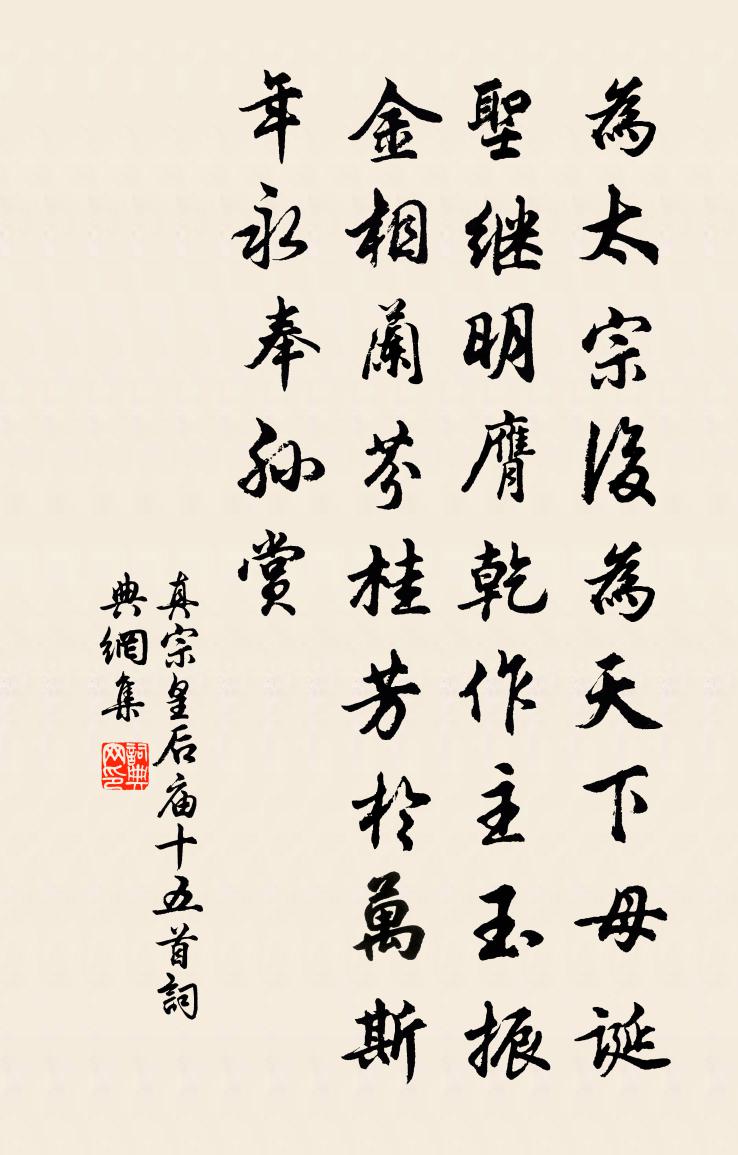 為太宗後為天下母誕
聖继明膺乾作主玉振
金相蘭芬桂芳於萬斯
年永奉孙賞
真宗皇后庙十五首詞
典網集
詞典
网印